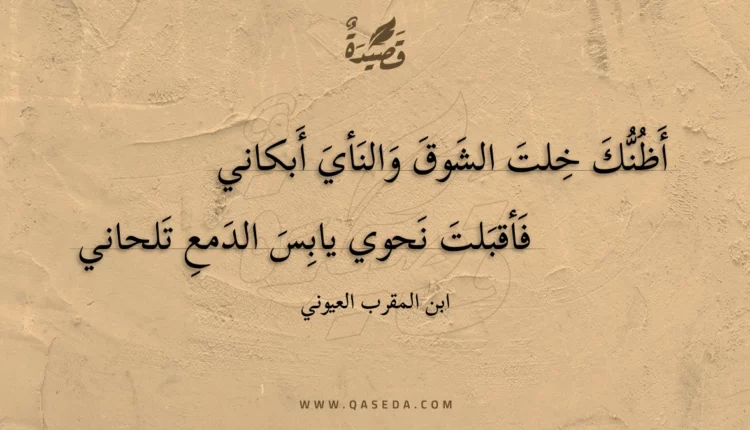 قَصِيْدَةٌ
أَظُنُّكَ خِلتَ الشَوقَ وَالنَأيَ أَبكاني
فَأَقبَلتَ نَحوي يابِسَ الدَمعِ تَلحاني
ابن المقرب العيوني
WWW.QASEDA.COM